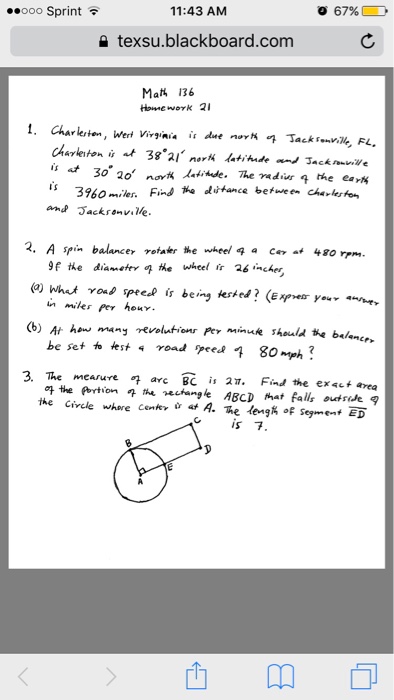 Sprint 11:43 AM 67%
texsu.blackboard.com
Math 136
Homework 21
1. Charleston, West Virginia is due north of Jacksonville, FL.
Charleston is at 38°21' north latitude and Jacksonville
is at 30°20' north latitude. The radius of the earth
is 3960 miles. Find the distance between Charleston
and Jacksonville.
2. A spin balancer rotates the wheel of a car at 480 rpm.
If the diameter of the wheel is 26 inches,
(a) What road speed is being tested? (Express your answer
in miles per hour.
(b) At how many revolutions per minute should the balancer
be set to test a road speed of 80 mph?
3. The measure of arc BC is 2π. Find the exact area
of the portion of the rectangle ABCD that falls outside of
the circle whose center is at A. The length of segment ED
is 7.
C
B
D
E
A